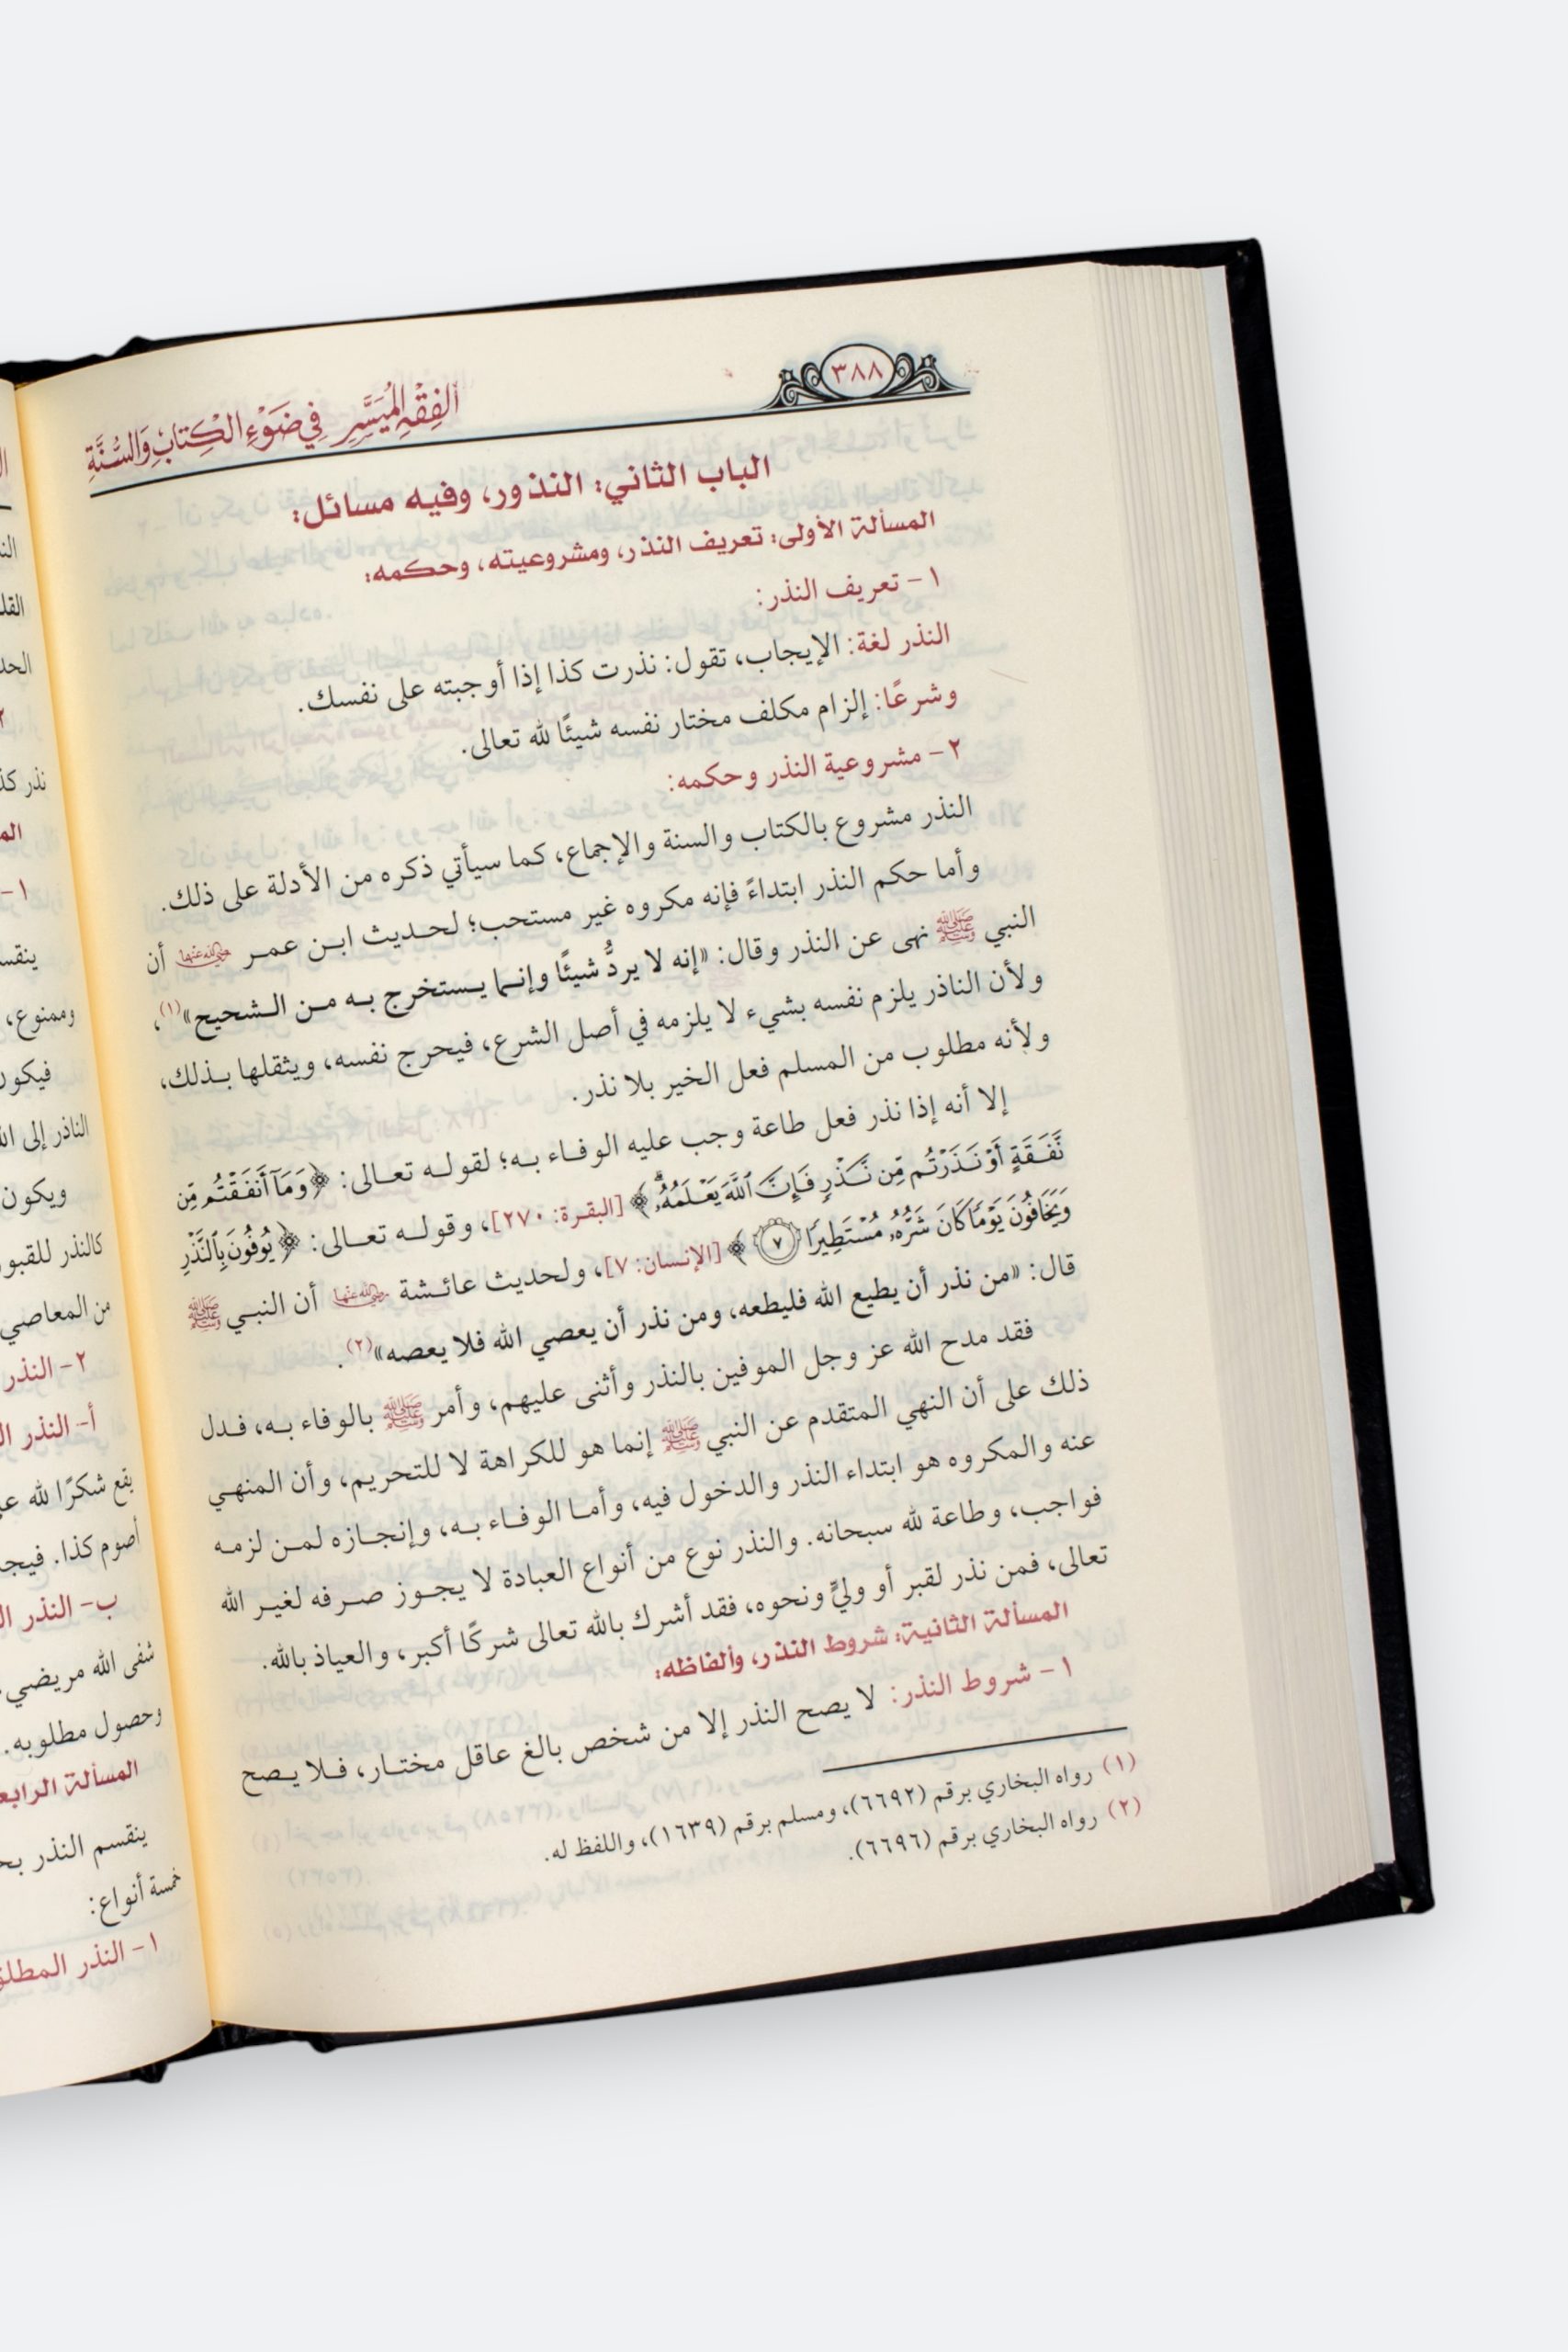 ٣٨٨
الفِقْهِ المُيَسَّرِ فِي ضَوْءِ الكِتَابِ وَالسُّنَّةِ
الباب الثاني: النذور، وفيه مسائل:
المسألة الأولى: تعريف النذر، ومشروعيته، وحكمه:
١ - تعريف النذر:
النذر لغة: الإيجاب، تقول: نذرت كذا إذا أوجبته على نفسك.
وشرعًا: إلزام مكلف مختار نفسه شيئًا لله تعالى.
٢ - مشروعية النذر وحكمه:
النذر مشروع بالكتاب والسنة والإجماع، كما سيأتي ذكره من الأدلة على ذلك.
وأما حكم النذر ابتداءً فإنه مكروه غير مستحب؛ لحديث ابن عمر رضي الله عنهما أن
النبي ﷺ نهى عن النذر وقال: «إنه لا يردُّ شيئًا وإنما يستخرج به من الشحيح»(١)،
ولأن الناذر يلزم نفسه بشيء لا يلزمه في أصل الشرع، فيحرج نفسه، ويثقلها بذلك،
ولأنه مطلوب من المسلم فعل الخير بلا نذر.
إلا أنه إذا نذر فعل طاعة وجب عليه الوفاء به؛ لقوله تعالى: ﴿وَمَآ أَنفَقْتُم مِّن
نَّفَقَةٍ أَوْ نَذَرْتُم مِّن نَّذْرٍ فَإِنَّ ٱللَّهَ يَعْلَمُهُۥ﴾ [البقرة: ٢٧٠]، وقوله تعالى: ﴿يُوفُونَ بِٱلنَّذْرِ
وَيَخَافُونَ يَوْمًا كَانَ شَرُّهُۥ مُسْتَطِيرًا ٧﴾ [الإنسان: ٧]، ولحديث عائشة رضي الله عنها أن النبي ﷺ
قال: «من نذر أن يطيع الله فليطعه، ومن نذر أن يعصي الله فلا يعصه»(٢).
فقد مدح الله عز وجل الموفين بالنذر وأثنى عليهم، وأمر ﷺ بالوفاء به، فدل
ذلك على أن النهي المتقدم عن النبي ﷺ إنما هو للكراهة لا للتحريم، وأن المنهي
عنه والمكروه هو ابتداء النذر والدخول فيه، وأما الوفاء به، وإنجازه لمن لزمه
فواجب، وطاعة لله سبحانه. والنذر نوع من أنواع العبادة لا يجوز صرفه لغير الله
تعالى، فمن نذر لقبر أو وليٍّ ونحوه، فقد أشرك بالله تعالى شركًا أكبر، والعياذ بالله.
المسألة الثانية: شروط النذر، وألفاظه:
١ - شروط النذر: لا يصح النذر إلا من شخص بالغ عاقل مختار، فلا يصح
(١) رواه البخاري برقم (٦٦٩٢)، ومسلم برقم (١٦٣٩)، واللفظ له.
(٢) رواه البخاري برقم (٦٦٩٦).
نذر
١ -
وممنوع،
الناذر إلى
ويكون
من المعاصي
٢ - النذر
أ - النذر
يقع شكرًا لله
أصوم كذا.
ب - النذر
شفى الله مريضي
وحصول مطلوبه.
المسألة
ينقسم النذر
خمسة أنواع:
١ - النذر